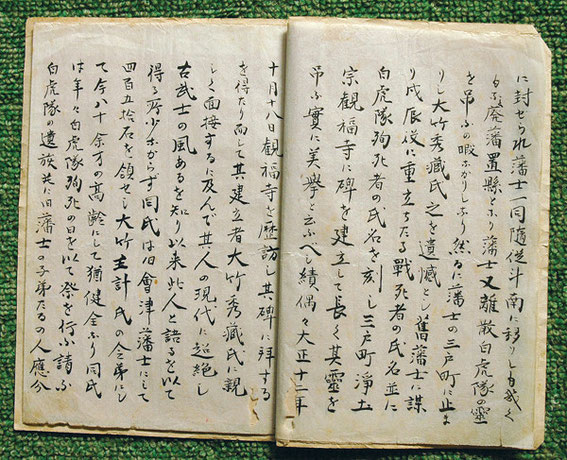 に封せられ藩士一同隨從斗南に移りしも幾く
もなく廃藩置縣となり藩士又離散白虎隊の靈
を吊ふの暇なかりしなり然るに藩士の三戸町に止ま
りし大竹秀藏氏之を遺憾とし舊藩士に謀
り戊辰役に重立ちたる戰死者の氏名並に
白虎隊殉死者の氏名を刻し三戸町淨土
宗観福寺に碑を建立して長く其靈を
吊ふ實に美擧と云ふべし績偶々大正十二年
十月十八日観福寺を歴訪し其碑に拜する
を得たり而して其建立者大竹秀藏氏に親
しく面接するに及んで其人の現代に超絶し
古武士の風あるを知り以来此人と語るを以て
得る所少なからず同氏は旧會津藩士にして
四百五拾石を領せし大竹主計氏の令弟にし
て今八十余才の高齢にして猶健全なり同氏
は年々白虎隊殉死の日を以て祭を行ふ請ふ
白虎隊の遺族共に旧藩士の子弟たるの人應分